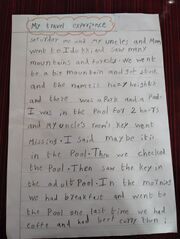 My travel experience
Saturday me and my uncles and Mom
went to Idukki and saw many
mountains and forests. we went
be a big mountain and get stuck
and the names hazy heights
and there was a Park and a Pool.
I was in the Pool for 2 hours
and my uncle's room key went
Missing. I said maybe its
in the Pool. Then we checked
the Pool. Then saw the key in
the adult Pool. In the morning
we had breakfast and went to
the Pool one last time we had
coffe and had beef curry then